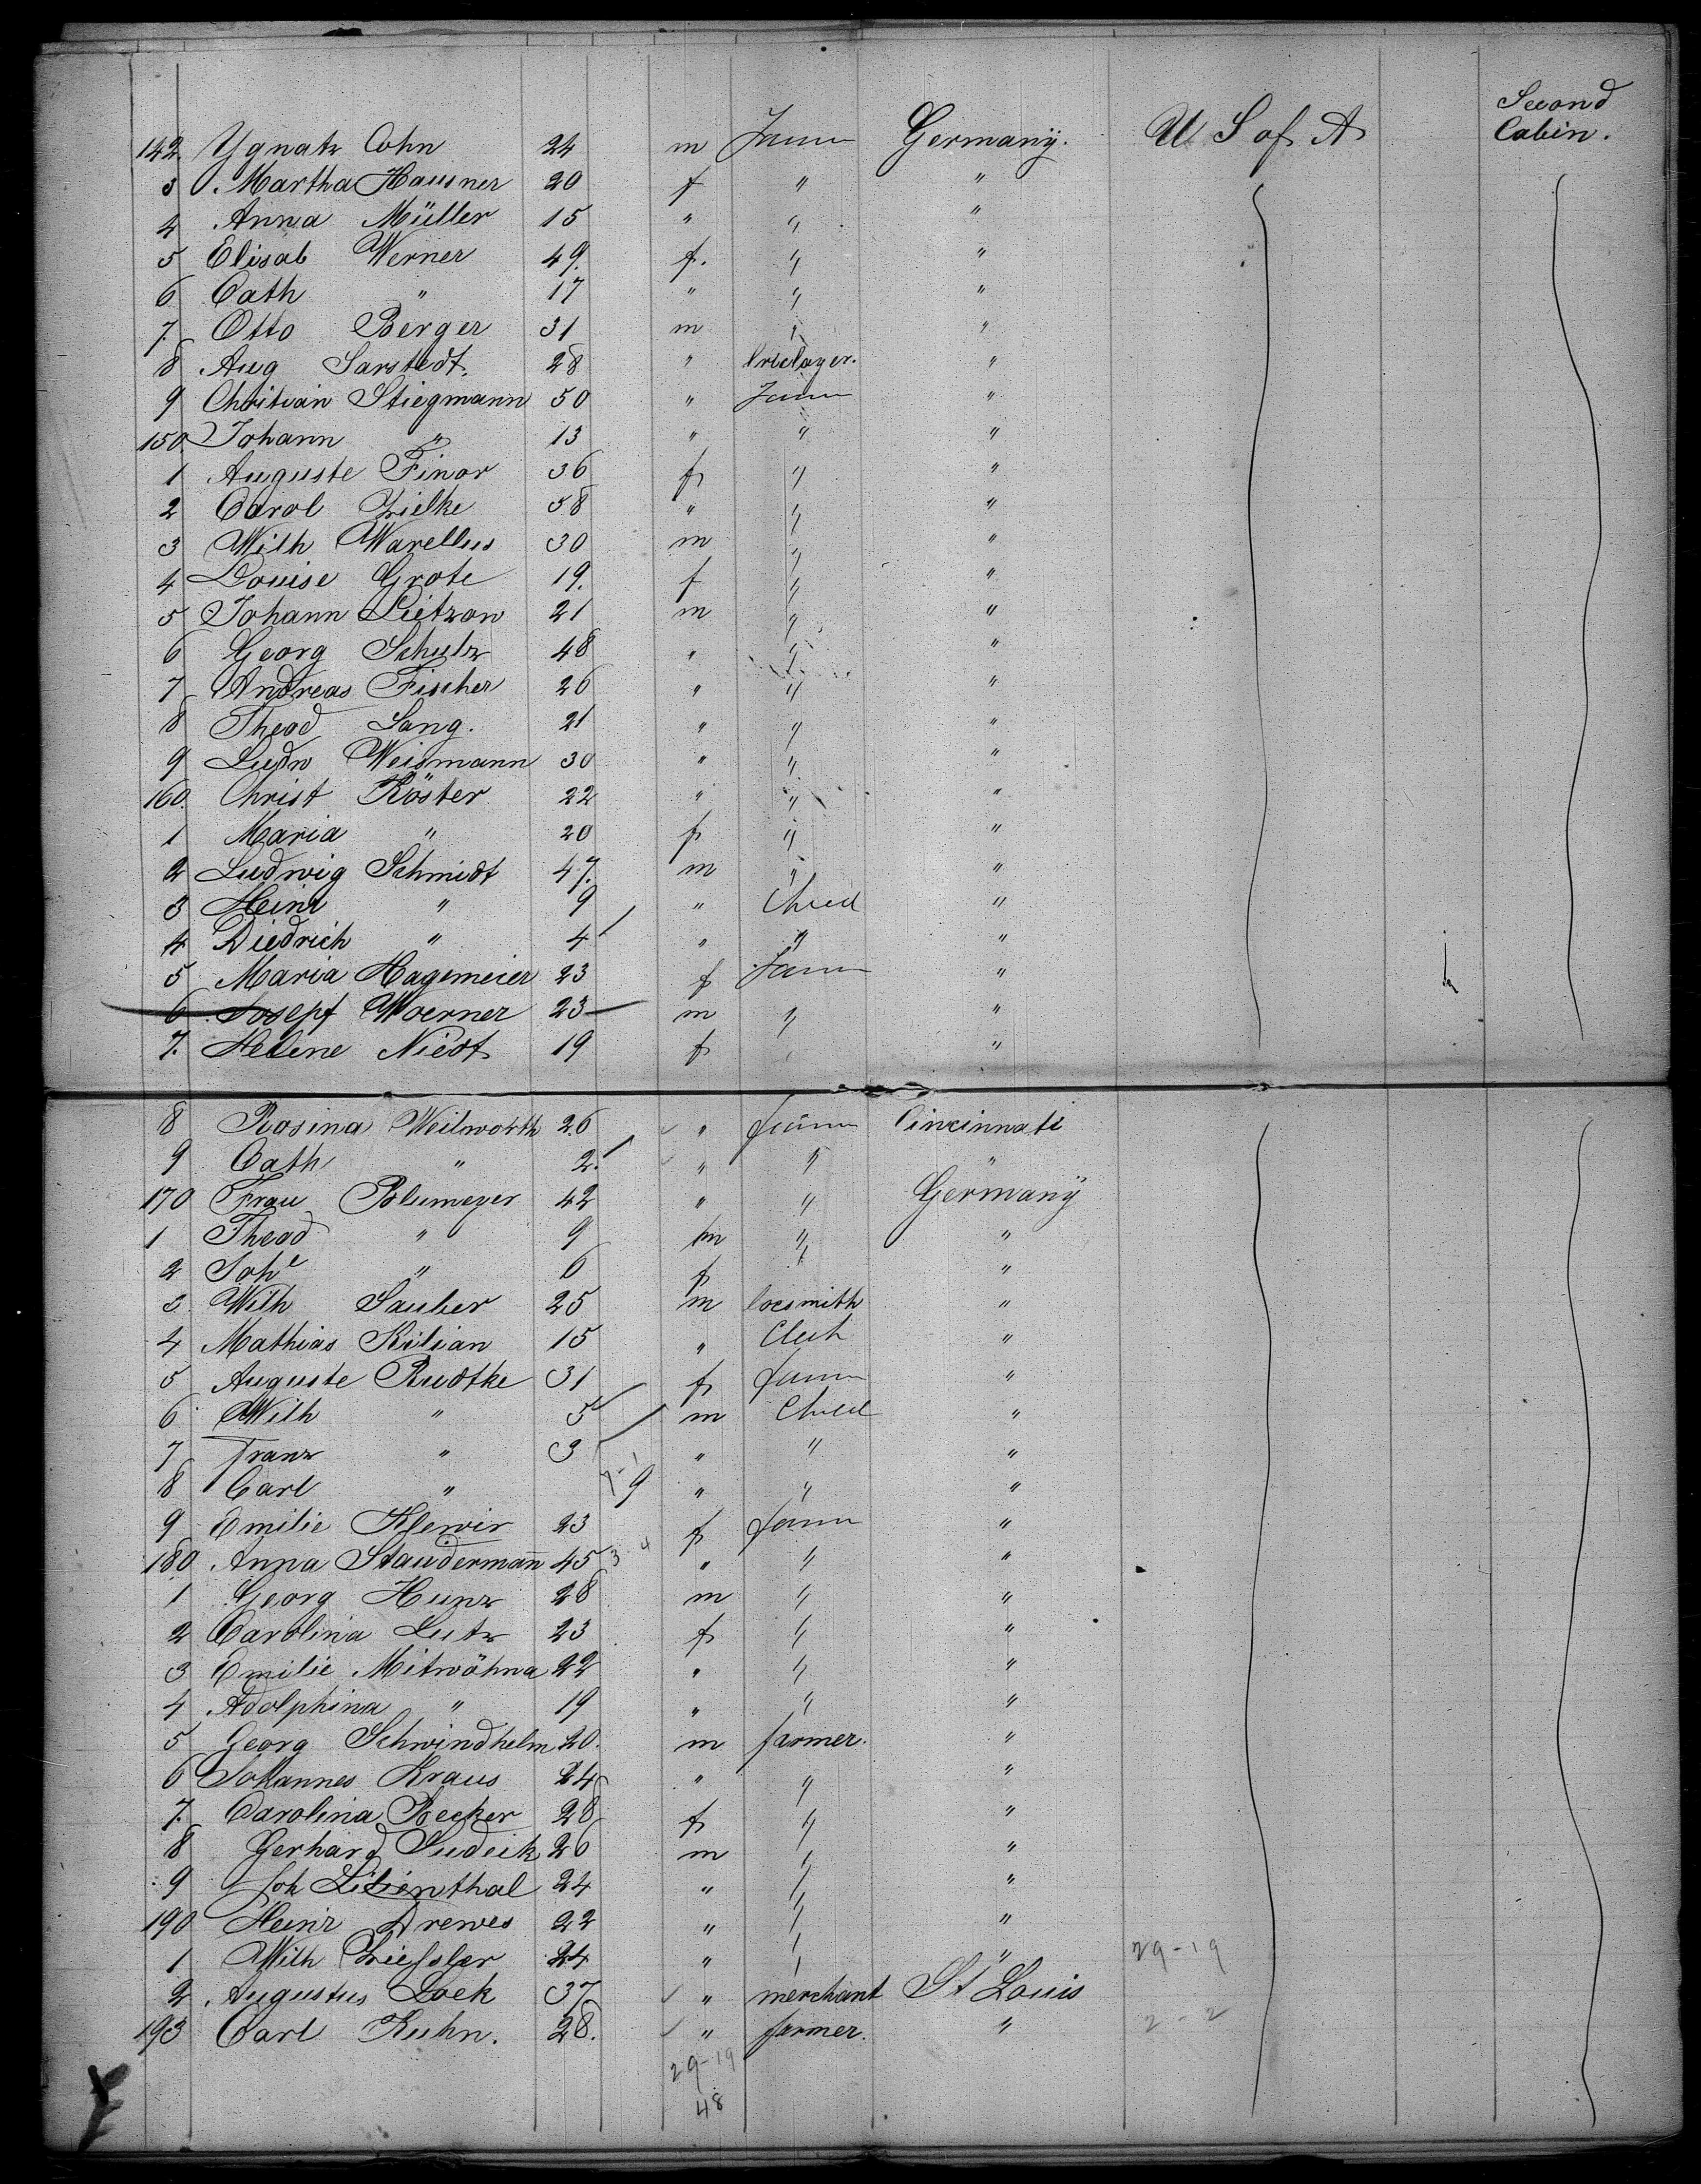 Second
142 Ygnatz Cohn 24 m Germany. U S of A Cabin.
3 Martha Hausner 20 f " "
4 Anna Müller 15 " " "
5 Elisab Werner 49. f. " "
6 Cath " 17 " " "
7. Otto Berger 31 m " "
8 Aug Sarstedt. 28 " bricklayer. "
9 Christian Stiegmann 50 " "
150. Johann " 13 " " "
1 Auguste Finor 36 f " "
2 Carol Zielke 58 " " "
3 Wilh Warellus 30 m " "
4 Louise Grote 19. f " "
5 Johann Lietzow 21 m " "
6 Georg Schulz 48 " " "
7 Andreas Fischer 26 " " "
8 Theod Lang. 21 " " "
9 Ludw Weismann 30 " " "
160. Christ Köster 22 " " "
1 Maria " 20 f " "
2 Ludwig Schmidt 47. m " "
3 Heinr " 9 " Child "
4 Diedrich " 4 " " "
5 Maria Hagemeier 23 f "
6 Josepf Woerner 23 m " "
7. Helene Niedt 19 f " "
8 Rosina Weilworth 26 " Cincinnati
9 Cath " 2. " " "
170 Frau Blumeyer 42 " " Germany
1 Theod " 9 m " "
2 Joh^e " 6 f " "
3 Wilh Sauber 25 m locsmith "
4 Mathias Kilian 15 " "
5 Auguste Rudtke 31 f "
6 Wilh " 5 m Child "
7 Franz " 3 " " "
8 Carl " 9 " " "
9 Emilie Klewir 23 f "
180. Anna Staudermañ 45 3 4 " " "
1 Georg Hunz 28 m " "
2 Carolina Lutz 23 f " "
3 Emilie Mitwöhna 22 " " "
4 Adolphina " 19 " " "
5 Georg Schwindhelm 20. m farmer. "
6 Johannes Kraus 24 " " "
7. Carolina Becker 28 f " "
8 Gerhard Sudeik 26 m " "
9 Joh Lilienthal 24 " " "
190 Heinr Drewes 22 " " "
1 Wilh Ziessler 24 " " " 29-19
2 Augustus Lock 37 " merchant St Louis
193 Carl Kuhn. 28. " farmer. " 2-2
29-19
48